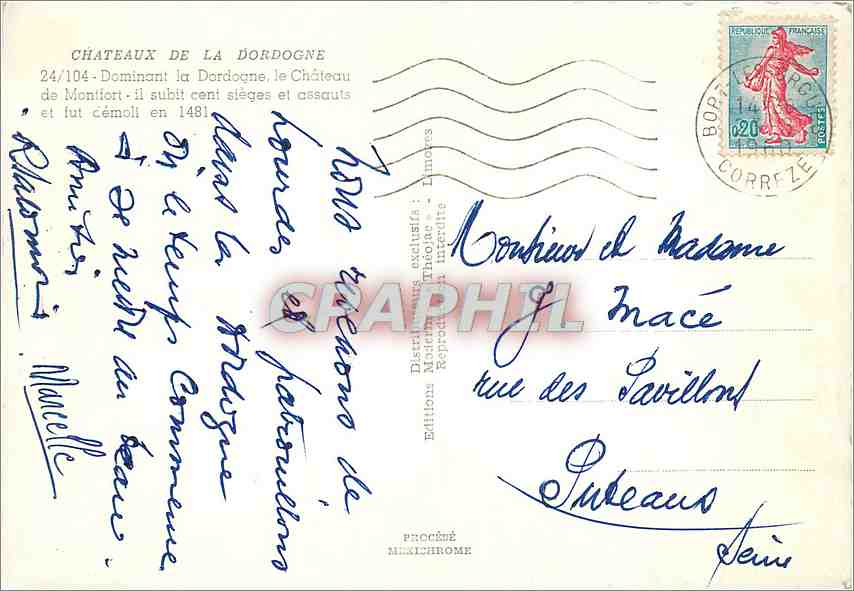 CHATEAUX DE LA DORDOGNE
24/104 - Dominant la Dordogne, le Château
de Montfort - il subit cent sièges et assauts
et fut démoli en 1481
Nous revenons de
Lourdes et patrouillons
dans la Dordogne
Où le temps Commence
à se mettre au beau.
Amitiés
Marcelle
Distributeurs exclusifs :
Editions Modernes "Théojac" - Limoges
Reproduction interdite
PROCÉDÉ
MEXICHROME
REPUBLIQUE FRANÇAISE
0,20
POSTES
BORT-LES-ORGUES
CORREZE
Monsieur et Madame
G. Macé
rue des Pavillons
Puteaux
Seine
CRAPHIL